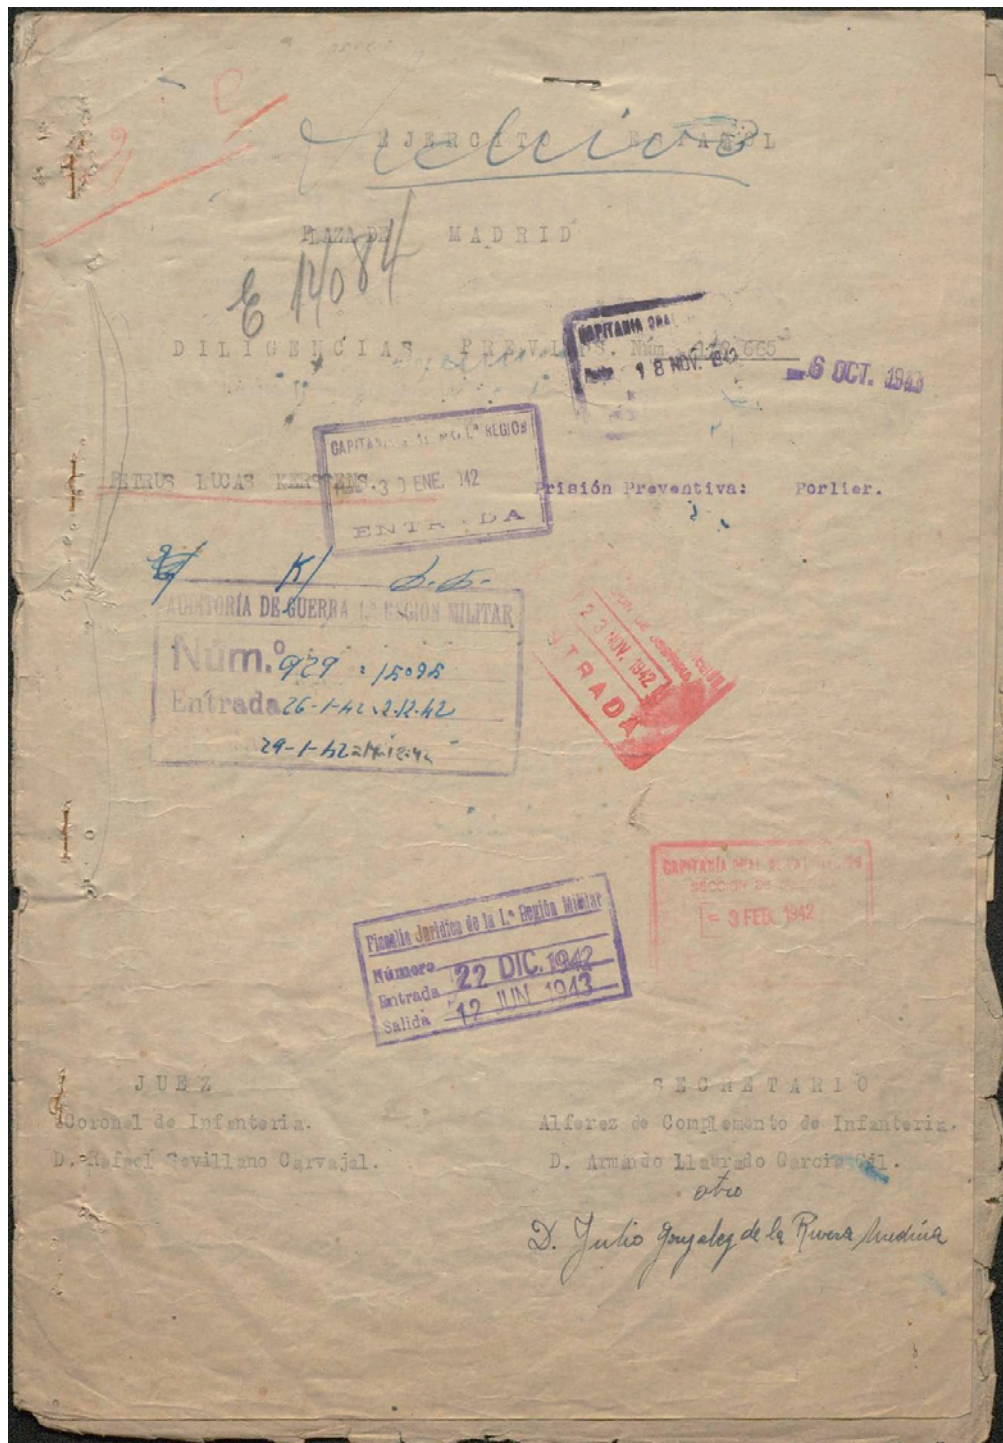 EJERCITO ESPAÑOL
PLAZA DE MADRID
E 14084
DILIGENCIAS PREVIAS. Núm 665
CAPITANIA GRAL
18 NOV. 1942
6 OCT. 1943
CAPITANIA REGION
30 ENE. 942
ENTRADA
PETRUS LUCAS KERSTENS.
Prisión Preventiva: Porlier.
AUDITORÍA DE GUERRA 1.ª REGION MILITAR
Núm.º 929 : 15095
Entrada 26-1-42 2.12.42
29-1-42
23 NOV. 1942
ENTRADA
CAPITANÍA GRAL DE LA REGION
SECCION DE
- 3 FEB. 1942
Fiscalía Jurídica de la 1.ª Región Militar
Número
Entrada 22 DIC. 1942
Salida 12 JUN 1943
JUEZ
Coronel de Infanteria.
D. Rafael Sevillano Carvajal.
SECRETARIO
Alferez de Complemento de Infanteria.
D. Armando Llaurado Garcia Gil.
otro
D. Julio Gonzalez de la Rivera Medina